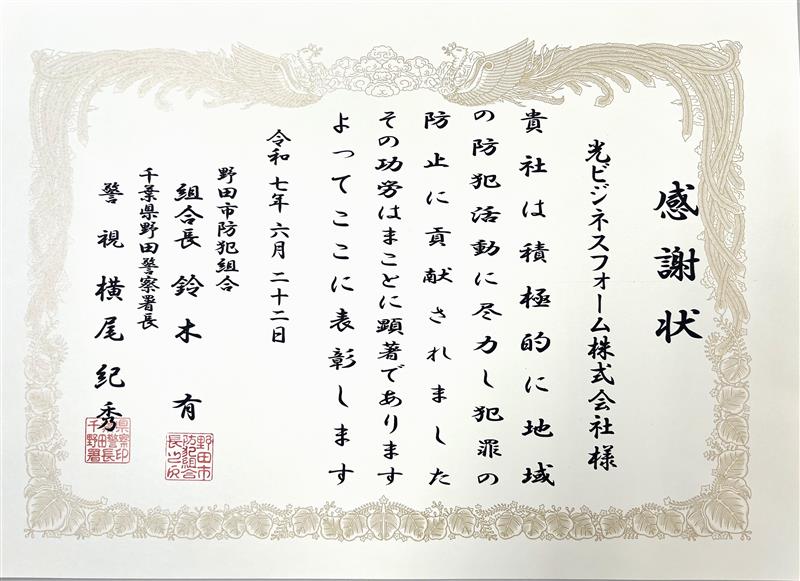 感謝状
光ビジネスフォーム株式会社様
貴社は積極的に地域
の防犯活動に尽力し犯罪の
防止に貢献されました
その功労はまことに顕著であります
よってここに表彰します
令和七年六月二十二日
野田市防犯組合
組合長 鈴木 有
千葉県野田警察署長
警視 横尾紀秀
野田市
防犯組合
長之印